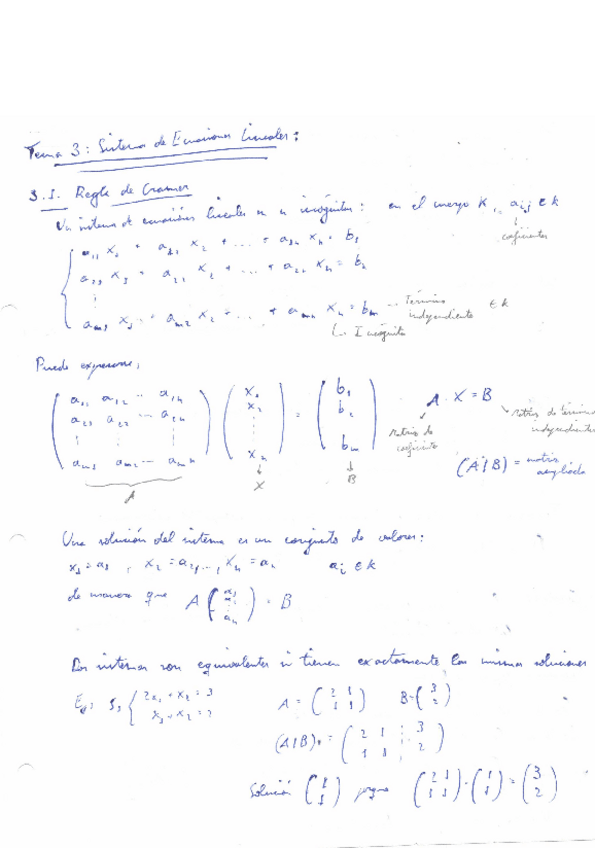 Tema 3: Sistema de Ecuaciones Lineales:
3.1. Regla de Cramer
Un sistema de ecuaciones lineales en n incógnitas: en el cuerpo K, a_ij ∈ K
coeficientes
a_11 x_1 + a_12 x_2 + ... + a_1n x_n = b_1
a_21 x_1 + a_22 x_2 + ... + a_2n x_n = b_2
⋮
a_m1 x_1 + a_m2 x_2 + ... + a_mn x_n = b_m → Término independiente ∈ K
Incógnita
Puede expresarse,
( a_11 a_12 ... a_1n ) ( x_1 ) ( b_1 )
( a_21 a_22 ... a_2n ) ( x_2 ) = ( b_2 ) A · X = B
( ⋮ ⋮ ⋮ ) ( ⋮ ) ( ⋮ ) Matriz de coeficiente matriz de término independientes
( a_m1 a_m2 ... a_mn ) ( x_n ) ( b_m ) (A|B) = matriz ampliada
A X B
Una solución del sistema es un conjunto de valores:
x_1 = a_1, x_2 = a_2, ..., x_n = a_n a_i ∈ K
de manera que A ( a_1 ⋮ a_n ) = B
Dos sistemas son equivalentes si tienen exactamente las mismas soluciones
Ej: S_1 { 2x_1 + x_2 = 3 A = ( 2 1 ) B = ( 3 )
x_1 + x_2 = 2 ( 1 1 ) ( 2 )
(A|B) = ( 2 1 ⋮ 3 )
( 1 1 ⋮ 2 )
Solución ( 1 ) porque ( 2 1 ) · ( 1 ) = ( 3 )
( 1 ) ( 1 1 ) ( 1 ) ( 2 )